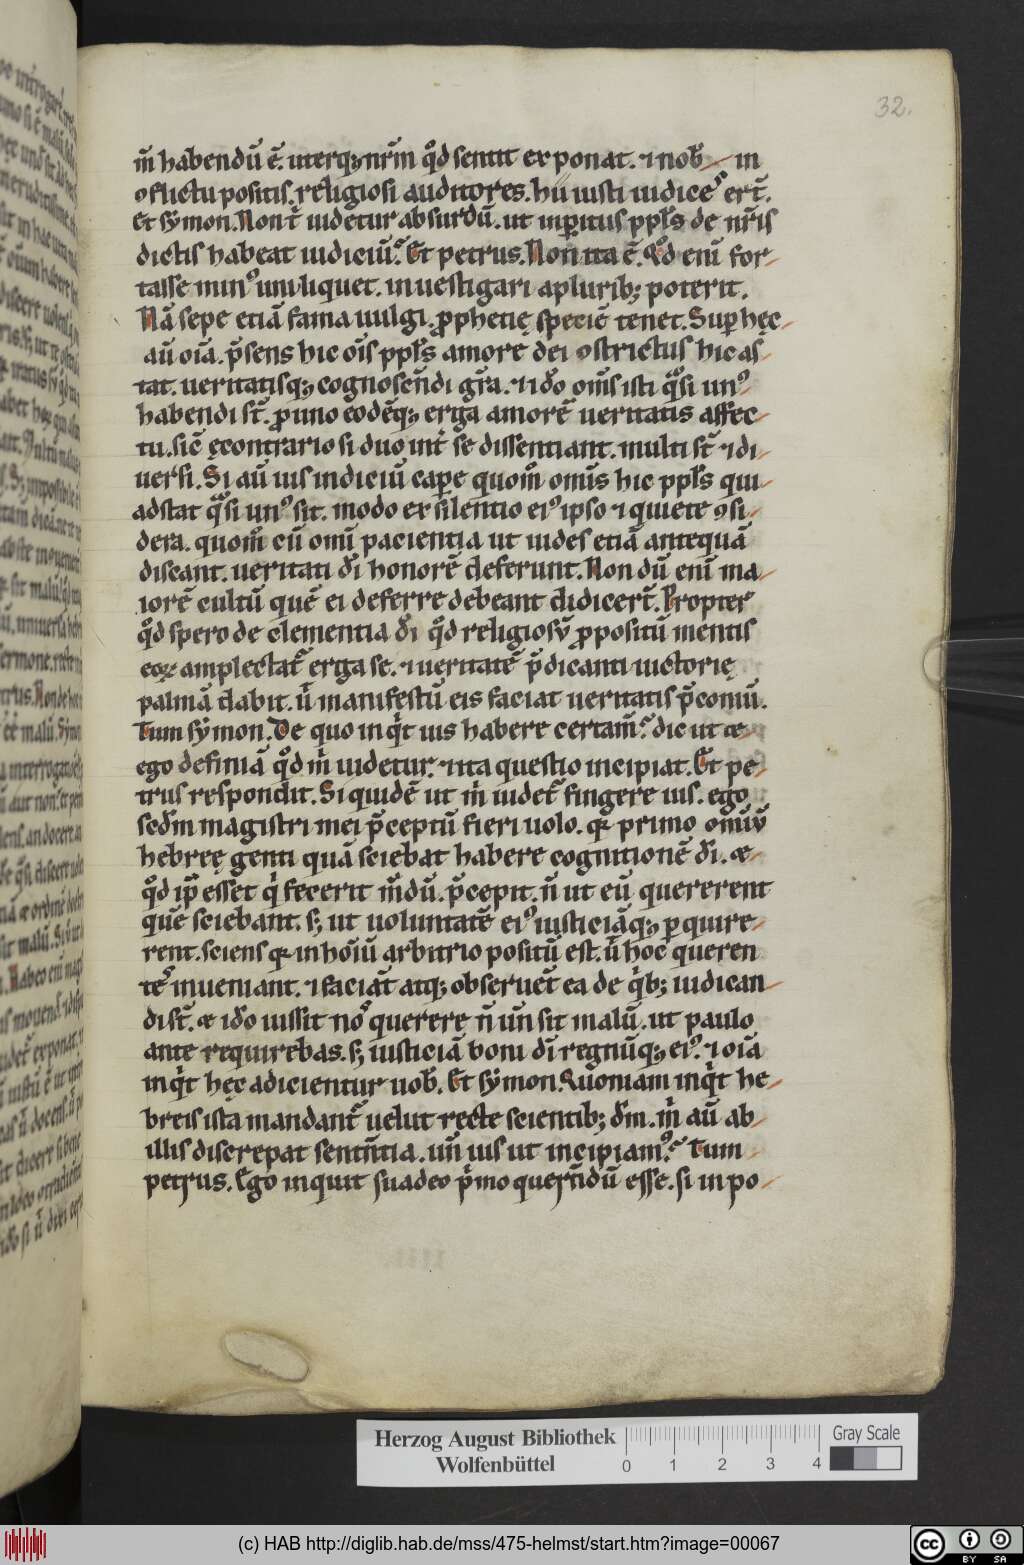 32.
m̄ habendū ē. uterq; nr̄m qͦd sentit exponat. ⁊ nob̄ in
ꝯflictu positis. religiosi auditores. hui iusti iudices ert̄.
Et symon. Non t̄ uidetur absurdū. ut inꝑitus ppl̄s de nr̄is
dictis habeat iudiciū. Et petrus. Non ita ē. Qͦd enī for-
tasse minꝰ uni liquet. inuestigari a plurib; poterit.
Nā sepe etiā fama uulgi. ꝓphetię speciē tenet. Suꝑ hęc
aū oīa. p̄sens hic oīs ppl̄s amore dei ꝯstrictus hic as-
tat. ueritatisq; cognoscēdi gr̄a. ⁊ idō om̄s isti qͣsi unꝰ
habendi st̄. ꝓ uno eodēq; erga amorē ueritatis affec-
tu. sic̄ ęcontrario si duo int̄ se dissentiant. multi st̄ ⁊ di-
uersi. Si aū uis indiciū caꝑe quom̄ om̄s hic ppl̄s qui
adstat qͣsi unꝰ sit. modo ex silentio eiꝰ ipso ⁊ quiete ꝯsi-
dera. quom̄ cū omī pacientia ut uides etiā antequā
discant. ueritati dī honorē deferunt. Non dū enī ma-
iorē cultū quē ei deferre debeant didicert̄. Propter
qͦd spero de clementia dī qͦd religiosū ꝓpositū mentis
eoꝝ amplectat̄ erga se. ⁊ ueritatē p̄dicanti uictorię
palmā dabit. ū manifestū eis faciat ueritatis p̄coniū.
Tum symon. De quo inqͥt uis habere certam̄. dic ut ⁊
ego definiā qͦd m̄ uidetur. ⁊ ita questio incipiat. Et pe-
trus respondit. Si quidē ut m̄ uidet̄ fingere uis. ego
sedm̄ magistri mei p̄ceptū fieri uolo. qꝛ primo omiū
hebreę genti quā sciebat habere cognitionē dī. ⁊
qͦd ip̄e esset qͥ fecerit m̄dū. p̄cepit. n̄ ut eū quererent
quē sciebant. s; ut uoluntatē eiꝰ iusticiāq; ꝑquire-
rent. sciens qꝛ in hoīū arbitrio positū est. ū hoc queren
tes inueniant. ⁊ faciāt atq; obseruēt ea de qͥb; iudican-
di st̄. ⁊ idō iussit nos querere n̄ un̄ sit malū. ut paulo
ante requirebas. s; iusticiā boni dī regnūq; eiꝰ. ⁊ oīa
inqͥt hęc adicientur uob̄. Et symon. Quoniam inqͥt he-
breis ista mandant̄ uelut recte scientib; dm̄. m̄ aū ab
illis discrepat sentn̄tia. un̄ uis ut incipiamꝰ. Tum
petrus. Ego inquit suadeo pͥmo querēdū esse. si in po-
Herzog August Bibliothek
Wolfenbüttel
0 1 2 3 4
Gray Scale
(c) HAB http://diglib.hab.de/mss/475-helmst/start.htm?image=00067
cc BY SA